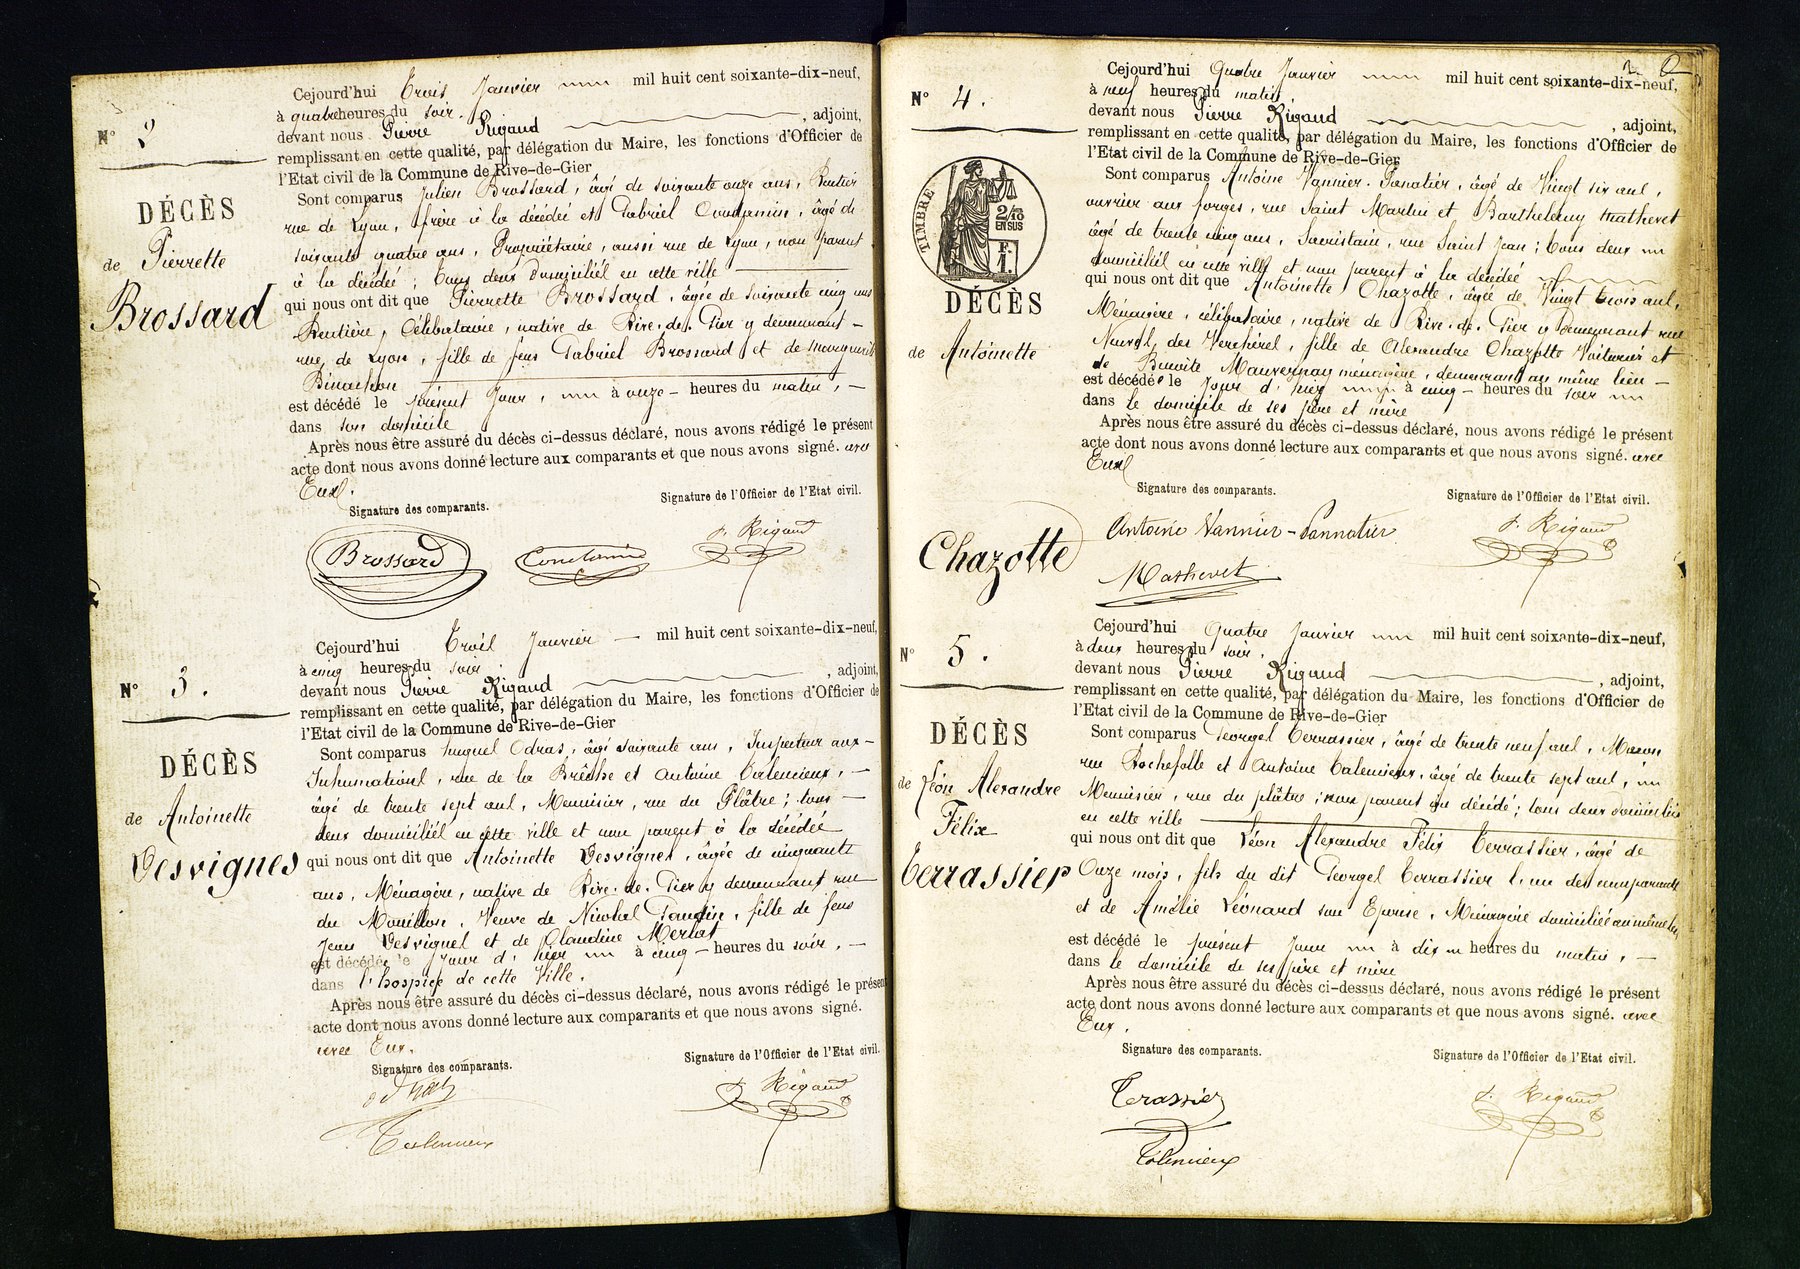 Cejourd'hui Trois Janvier mil huit cent soixante-dix-neuf,
à quatre heures du soir.
devant nous Pierre Rigaud, adjoint,
remplissant en cette qualité, par délégation du Maire, les fonctions d'Officier de
l'Etat civil de la Commune de Rive-de-Gier
N° 2
DÉCÈS
de Pierrette
Brossard
Sont comparus Julien Brossard, âgé de soixante onze ans, Rentier
rue de Lyon, frère à la décédée et Gabriel, âgé de
soixante quatre ans, Propriétaire, aussi rue de Lyon, non parent
à la décédée ; tous deux domiciliés en cette ville
qui nous ont dit que Pierrette Brossard, âgée de soixante cinq ans
Rentière, Célibataire, native de Rive-de-Gier y demeurant
rue de Lyon, fille de feus Gabriel Brossard et de Marguerite
est décédé le présent Jour, à onze heures du matin,
dans son domicile
Après nous être assuré du décès ci-dessus déclaré, nous avons rédigé le présent
acte dont nous avons donné lecture aux comparants et que nous avons signé. avec
Eux.
Signature des comparants.
Signature de l'Officier de l'Etat civil.
Brossard
P. Rigaud
Cejourd'hui Trois Janvier mil huit cent soixante-dix-neuf,
à cinq heures du soir.
devant nous Pierre Rigaud, adjoint,
remplissant en cette qualité, par délégation du Maire, les fonctions d'Officier de
l'Etat civil de la Commune de Rive-de-Gier
N° 3.
DÉCÈS
de Antoinette
Desvignes
Sont comparus Odras, âgé soixante ans, Inspecteur aux
Inhumations, rue de la et Antoine Talemieux,
âgé de trente sept ans, Menuisier, rue du Plâtre ; tous
deux domiciliés en cette ville et non parent à la décédée
qui nous ont dit que Antoinette Desvignes, âgée de cinquante
ans, Ménagère, native de Rive-de-Gier y demeurant rue
du Mouillon, Veuve de Nicolas, fille de feus
Jean Desvignes et de Claudine
est décédée le Jour d'hier à cinq heures du soir,
dans l'hospice de cette Ville.
Après nous être assuré du décès ci-dessus déclaré, nous avons rédigé le présent
acte dont nous avons donné lecture aux comparants et que nous avons signé.
avec Eux.
Signature des comparants.
Signature de l'Officier de l'Etat civil.
P. Rigaud
Talemieux
2
Cejourd'hui Quatre Janvier mil huit cent soixante-dix-neuf,
à neuf heures du matin
devant nous Pierre Rigaud, adjoint,
remplissant en cette qualité, par délégation du Maire, les fonctions d'Officier de
l'Etat civil de la Commune de Rive-de-Gier
N° 4.
TIMBRE
2/10
EN SUS
F.
1.
DÉCÈS
de Antoinette
Chazotte
Sont comparus Antoine Vannier-Panatier, âgé de Vingt six ans,
ouvrier aux forges, rue Saint Martin et Barthélemy Mathevet
âgé de trente cinq ans, Sacristain, rue Saint Jean ; tous deux
domiciliés en cette ville et non parent à la décédée
qui nous ont dit que Antoinette Chazotte, âgée de Vingt trois ans,
Ménagère, célibataire, native de Rive-de-Gier y demeurant rue
Neuve des Verchères, fille de Alexandre Chazotte Voiturier et
de Benoite Mauvernay ménagère, demeurant au même lieu
est décédée le Jour d'hier à cinq heures du soir
dans le domicile de ses père et mère
Après nous être assuré du décès ci-dessus déclaré, nous avons rédigé le présent
acte dont nous avons donné lecture aux comparants et que nous avons signé. avec
Eux
Signature des comparants.
Signature de l'Officier de l'Etat civil.
Antoine Vannier-Pannatier
P. Rigaud
Mathevet
Cejourd'hui Quatre Janvier mil huit cent soixante-dix-neuf,
à deux heures du soir.
devant nous Pierre Rigaud, adjoint,
remplissant en cette qualité, par délégation du Maire, les fonctions d'Officier de
l'Etat civil de la Commune de Rive-de-Gier
N° 5.
DÉCÈS
de Léon Alexandre
Félix
Terrassier
Sont comparus Georges Terrassier, âgé de trente neuf ans, Maçon
rue Rochefolle et Antoine Talemieux, âgé de trente sept ans,
Menuisier, rue du plâtre ; non parent du décédé ; tous deux domiciliés
en cette ville
qui nous ont dit que Léon Alexandre Félix Terrassier, âgé de
Onze mois, fils du dit Georges Terrassier l'un des comparants
et de Amélie Léonard son Epouse, Ménagère domiciliée au même lieu
est décédé le présent Jour à dix heures du matin,
dans le domicile de ses père et mère
Après nous être assuré du décès ci-dessus déclaré, nous avons rédigé le présent
acte dont nous avons donné lecture aux comparants et que nous avons signé. avec
Eux.
Signature des comparants.
Signature de l'Officier de l'Etat civil.
Terassier
P. Rigaud
Talemieux